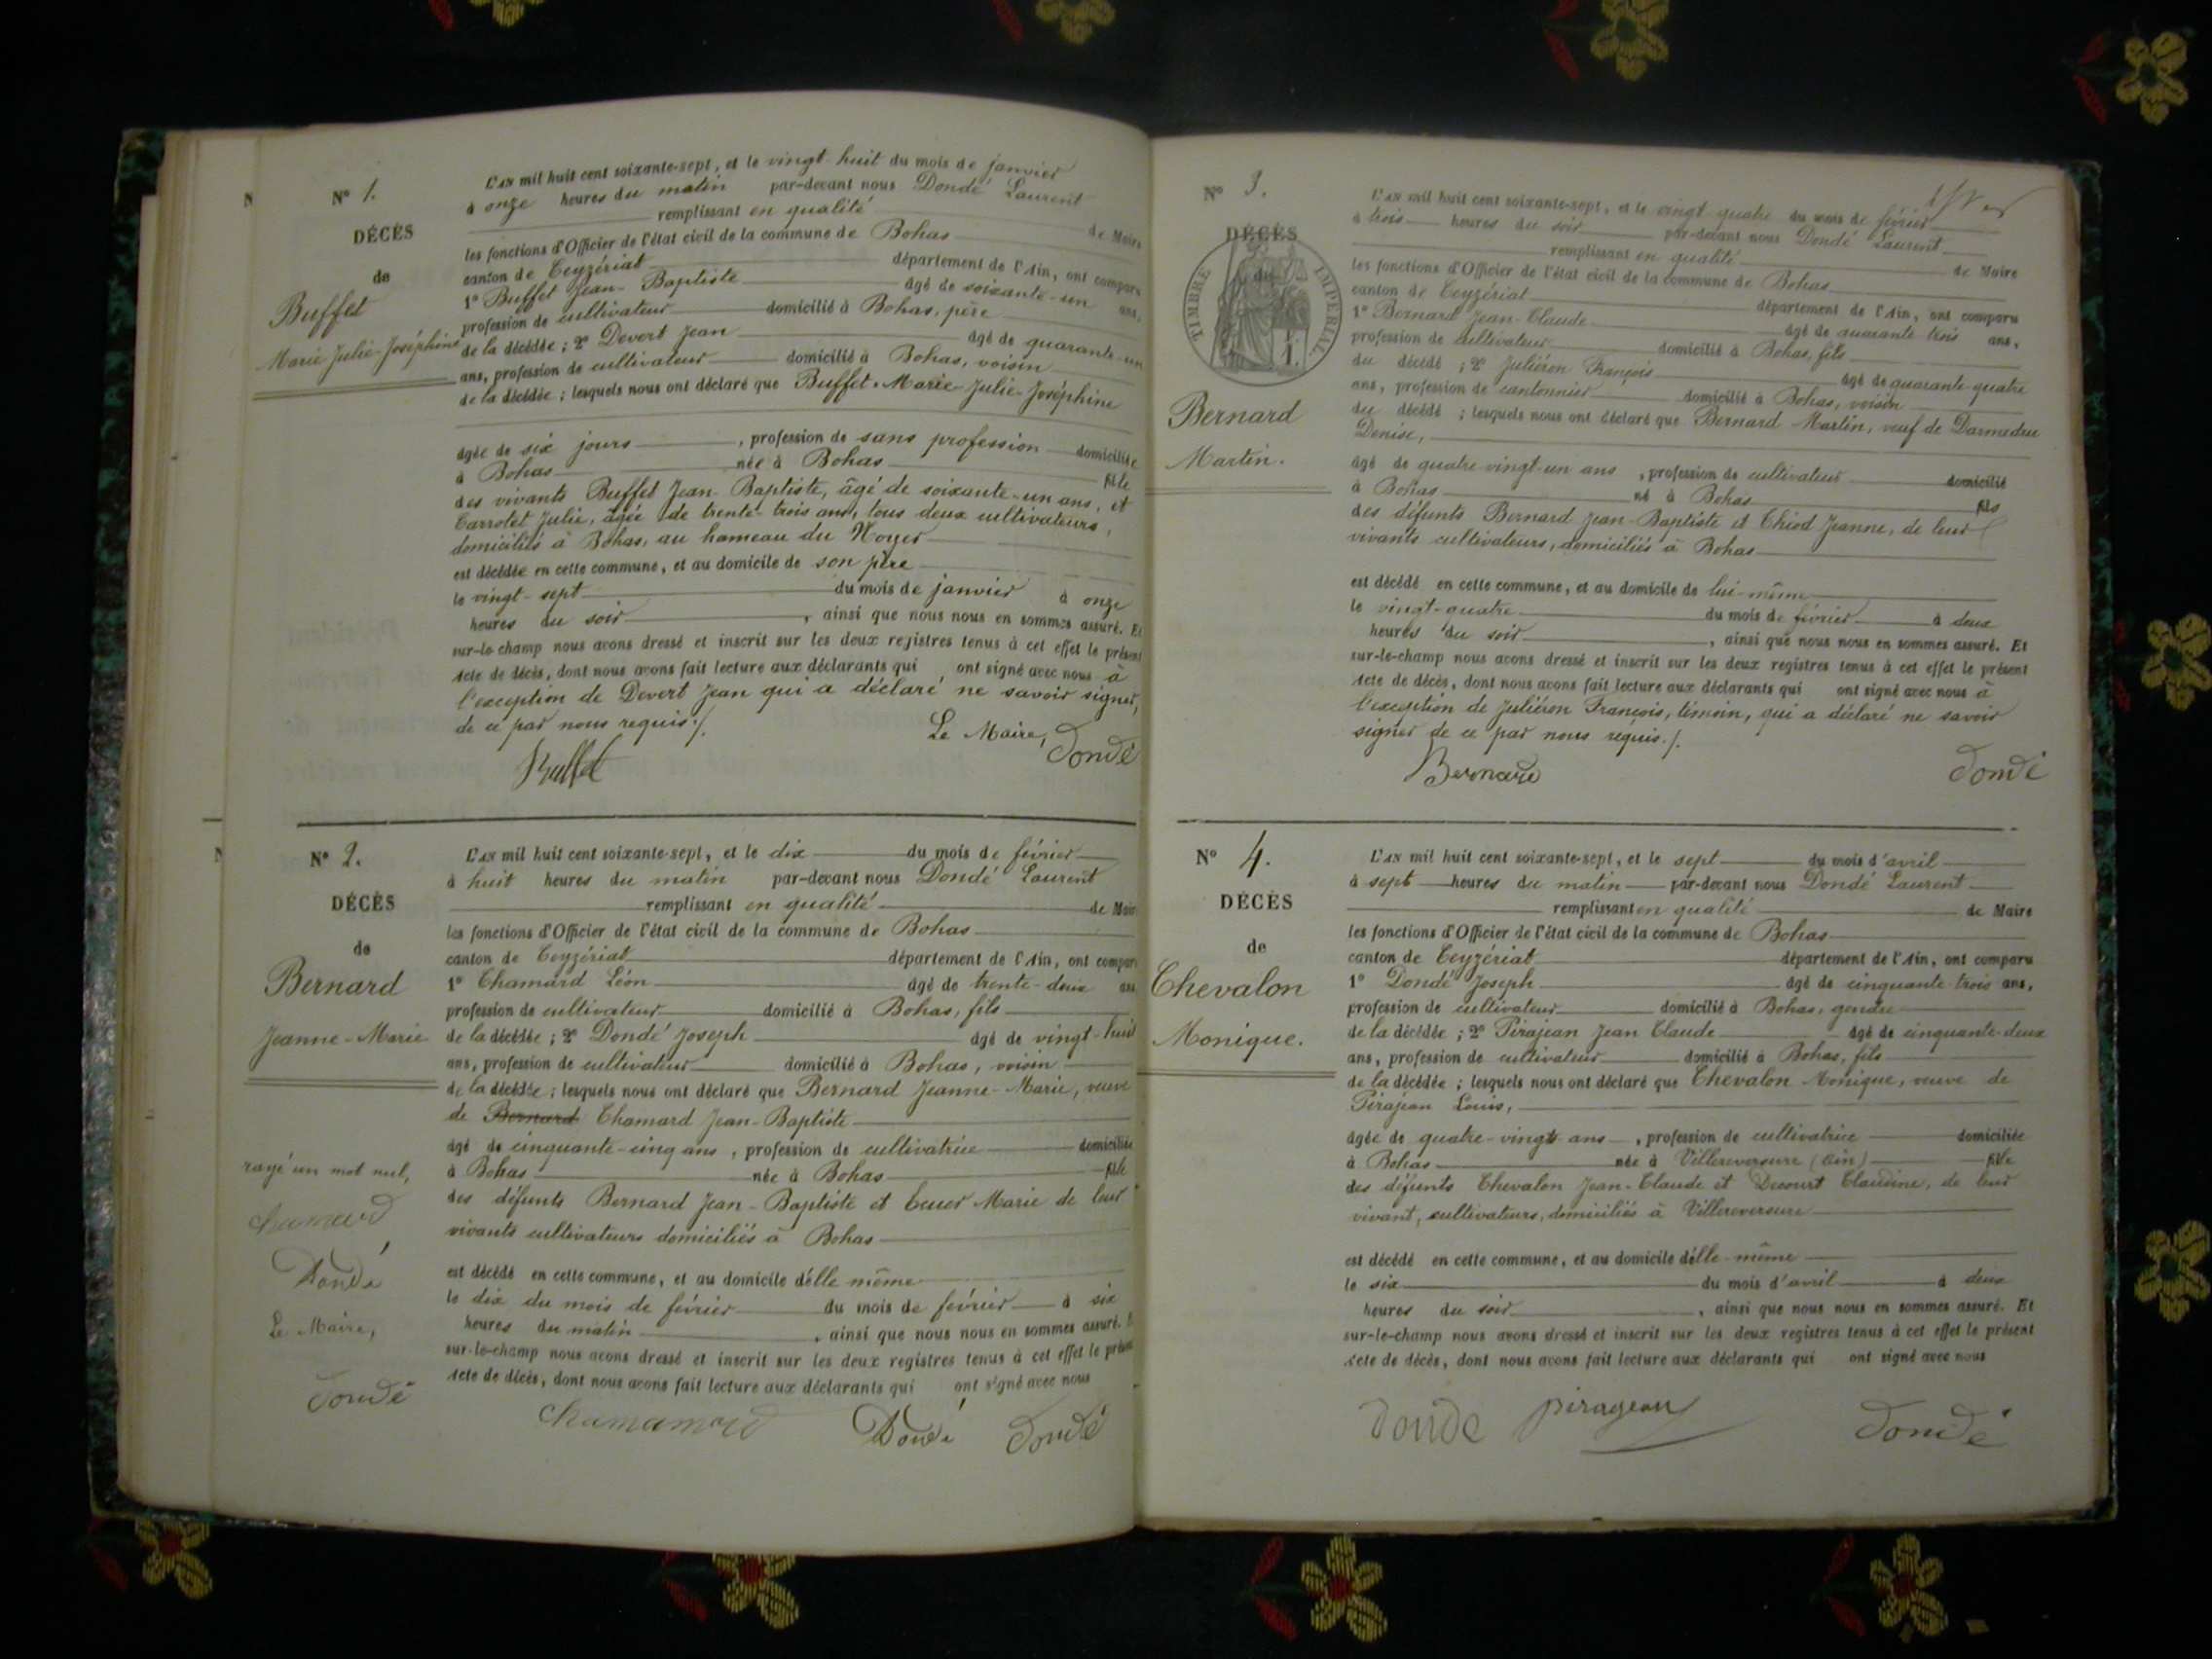 N° 1.
DÉCÈS
de
Buffet
Marie-Julie-Joséphine
L'AN mil huit cent soixante-sept, et le vingt-huit du mois de janvier
à onze heures du matin par-devant nous Dondé Laurent
remplissant en qualité de Maire
les fonctions d'Officier de l'état civil de la commune de Bohas
canton de Ceyzériat département de l'Ain, ont comparu
1° Buffet Jean-Baptiste âgé de soixante-un ans,
profession de cultivateur domicilié à Bohas, père
de la décédée ; 2° Devert Jean âgé de quarante-un
ans, profession de cultivateur domicilié à Bohas, voisin
de la décédée ; lesquels nous ont déclaré que Buffet Marie-Julie-Joséphine
âgée de six jours, profession de sans profession domiciliée
à Bohas née à Bohas fille
des vivants Buffet Jean-Baptiste, âgé de soixante-un ans, et
Carrotet Julie, âgée de trente-trois ans, tous deux cultivateurs,
domiciliés à Bohas, au hameau du Noyer
est décédée en cette commune, et au domicile de son père
le vingt-sept du mois de janvier à onze
heures du soir, ainsi que nous nous en sommes assuré. Et
sur-le-champ nous avons dressé et inscrit sur les deux registres tenus à cet effet le présent
acte de décès, dont nous avons fait lecture aux déclarants qui, ont signé avec nous à
l'exception de Devert Jean qui a déclaré ne savoir signer,
de ce par nous requis./.
Le Maire,
Buffet Dondé
N° 2.
DÉCÈS
de
Bernard
Jeanne-Marie
rayé un mot nul,
chamard
Dondé
Le Maire,
Dondé
L'AN mil huit cent soixante-sept, et le dix du mois de février
à huit heures du matin par-devant nous Dondé Laurent
remplissant en qualité de Maire
les fonctions d'Officier de l'état civil de la commune de Bohas
canton de Ceyzériat département de l'Ain, ont comparu
1° Chamard Léon âgé de trente-deux ans
profession de cultivateur domicilié à Bohas, fils
de la décédée ; 2° Dondé Joseph âgé de vingt-huit
ans, profession de cultivateur domicilié à Bohas, voisin
de la décédée ; lesquels nous ont déclaré que Bernard Jeanne-Marie, veuve
de Bernard Chamard Jean-Baptiste
âgé de cinquante-cinq ans, profession de cultivatrice domiciliée
à Bohas née à Bohas fille
des défunts Bernard Jean-Baptiste et Marie de leur
vivants cultivateurs domiciliés à Bohas
est décédé en cette commune, et au domicile d'elle même
le dix du mois de février du mois de février à six
heures du matin, ainsi que nous nous en sommes assuré. E
sur-le-champ nous avons dressé et inscrit sur les deux registres tenus à cet effet le présent
acte de décès, dont nous avons fait lecture aux déclarants qui ont signé avec nous
chamamard Dondé Dondé
N° 3.
DÉCÈS
de
TIMBRE IMPERIAL.
1.
Bernard
Martin.
L'AN mil huit cent soixante-sept, et le vingt quatre du mois de février
à trois heures du soir par-devant nous Dondé Laurent
remplissant en qualité de Maire
les fonctions d'Officier de l'état civil de la commune de Bohas
canton de Ceyzériat département de l'Ain, ont comparu
1° Bernard Jean-Claude âgé de quarante trois ans,
profession de cultivateur domicilié à Bohas, fils
du décédé ; 2° Juliéron François âgé de quarante-quatre
ans, profession de cantonnier domicilié à Bohas, voisin
du décédé ; lesquels nous ont déclaré que Bernard Martin, veuf de Darmedru
Denise,
âgé de quatre-vingt-un ans, profession de cultivateur domicilié
à Bohas né à Bohas fils
des défunts Bernard Jean-Baptiste et Chiod Jeanne, de leur
vivants cultivateurs, domiciliés à Bohas
est décédé en cette commune, et au domicile de lui-même
le vingt-quatre du mois de février à deux
heures du soir, ainsi que nous nous en sommes assuré. Et
sur-le-champ nous avons dressé et inscrit sur les deux registres tenus à cet effet le présent
acte de décès, dont nous avons fait lecture aux déclarants qui ont signé avec nous à
l'exception de Juliéron François, témoin, qui a déclaré ne savoir
signer de ce par nous requis./.
Bernard Dondé
N° 4.
DÉCÈS
de
Chevalon
Monique.
L'AN mil huit cent soixante-sept, et le sept du mois d'avril
à sept heures du matin par-devant nous Dondé Laurent
remplissant en qualité de Maire
les fonctions d'Officier de l'état civil de la commune de Bohas
canton de Ceyzériat département de l'Ain, ont comparu
1° Dondé Joseph âgé de cinquante-trois ans,
profession de cultivateur domicilié à Bohas, gendre
de la décédée ; 2° Pirajean Jean Claude âgé de cinquante-deux
ans, profession de cultivateur domicilié à Bohas, fils
de la décédée ; lesquels nous ont déclaré que Chevalon Monique, veuve de
Pirajean Louis,
âgée de quatre-vingts ans, profession de cultivatrice domiciliée
à Bohas née à Villereversure (Ain) fille
des défunts Chevalon Jean-Claude et Decourt Claudine, de leur
vivant, cultivateurs, domiciliés à Villereversure
est décédé en cette commune, et au domicile d'elle-même
le six du mois d'avril à deux
heures du soir, ainsi que nous nous en sommes assuré. Et
sur-le-champ nous avons dressé et inscrit sur les deux registres tenus à cet effet le présent
acte de décès, dont nous avons fait lecture aux déclarants qui ont signé avec nous
donde piragean Dondé